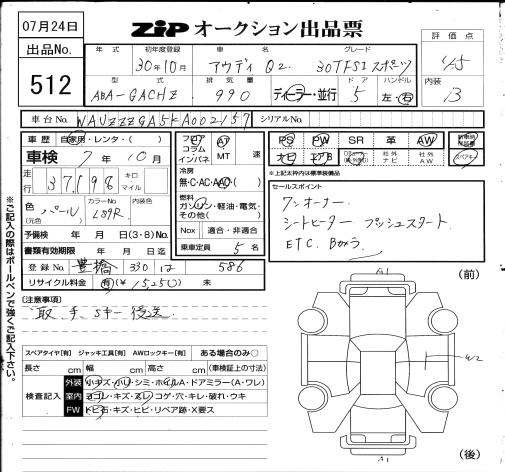 07月24日
ZiP オークション出品票
出品No.
512
年式 初年度登録 車名 グレード
30年10月 アウディ Q2 30TFSIスポーツ
型式 排気量 ドア ハンドル
ABA-GACHZ 990 ディーラー・並行 5 左・右
評価点
4.5
内装
B
車台No. WAUZZZGA5KA002157 シリアルNo.
車歴 自家用・レンタ・( )
車検 7年10月
走行 37,198 キロ マイル
色(元色) パール カラーNo. L89R 内装色
予備検 年 月 日(3・8)No.
書類有効期限 年 月 日迄
登録No. 豊橋 330 は 586
リサイクル料金 有(¥15,250) 未
フロア コラム インパネ AT MT 速
冷房 無・C・AC・AAC
燃料 ガソリン・軽油・電気・その他( )
Nox 適合・非適合
乗車定員 5名
PS PW SR 革 AW 新車時保証書
ナビ エアB 社外ナビ 社外AW スペアキー
※上記太枠内は標準装備品
セールスポイント
ワンオーナー
シートヒーター プッシュスタート
ETC Bカメラ
(注意事項)
取、手、Sキー 後送
スペアタイヤ[有] ジャッキ工具[有] AWロックキー[有] ある場合のみ○
長さ cm 幅 cm 高さ cm (車検証上の寸法)
検査記入
外装 小キズ・小リ・シミ・ホイルA・ドアミラー(A・ワレ)
室内 ヨゴレ・キズ・スレ・コゲ・穴・キレ・破れ・ウキ
FW トビ石・キズ・ヒビ・リペア跡・X要ス
※ご記入の際はボールペンで強くご記入下さい。
(前)
A1
W2
A1
(後)